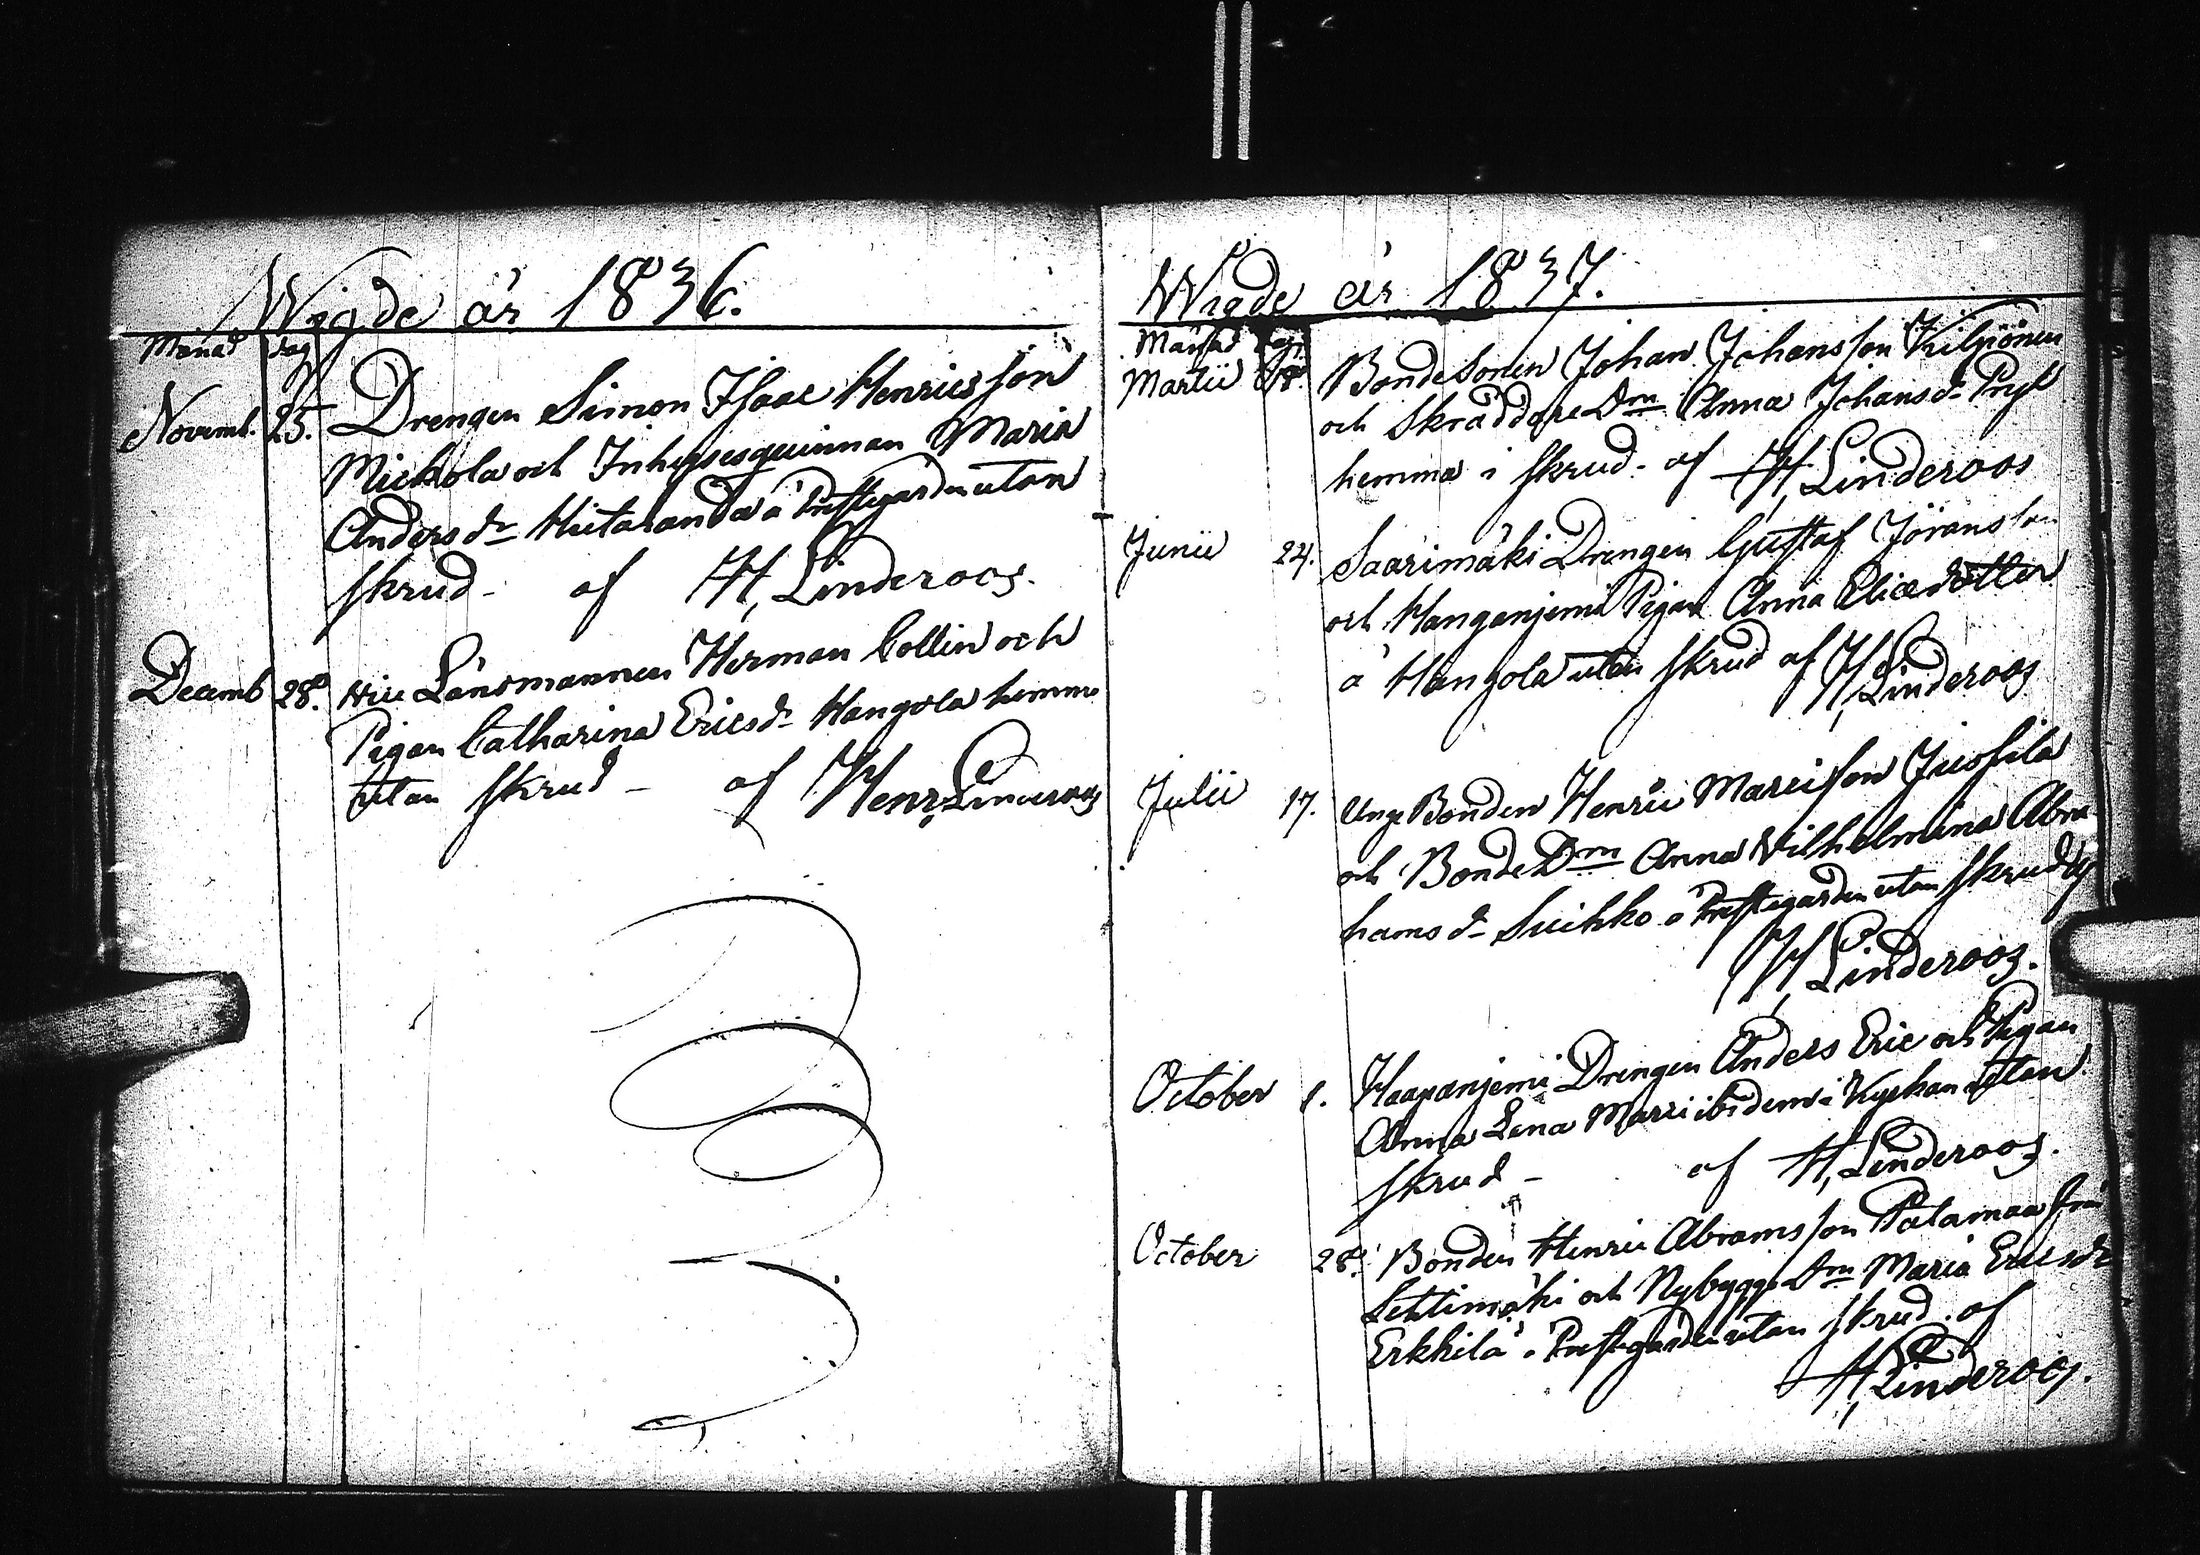 Wigde år 1836.
Månad dag
Novemb. 25. Drengen Simon Isaac Henricsson
Mickola och Inhysesquinnan Maria
Andersdr Hietaranda i Prestegården utan
skrud - af H. Linderoos.
Decemb 28. Vice Länsmannen Herman Collin och
Pigan Catharina Ericsdr Hangola hemma
utan skrud - af Henr. Linderoos
Wigde år 1837.
Månad dag
Martii 18. Bondesonen Johan Johansson Kilpiönen
och Skräddare Dm Anna Johansdr
hemma i skrud - af H. Linderoos
Junii 24. Saarimäki Drengen Gustaf Göransson
och Hanganjemi Pigan Anna Elicædotter
å Hangola utan skrud af H. Linderoos
Julii 17. Unge Bonden Henric Marcisson Juossila
och Bonde Dm Anna Wilhelmina Abra-
hamsdr Suikko i Prestegården utan skrud af
H. Linderoos.
October 1. Haapanjemi Drengen Anders Eric och Pigan
Anna Lena Marci ibidem i Kyrkan utan
skrud - af H. Linderoos.
October 28. Bonden Henric Abramsson Palamaa från
Lehtimäki och Nybygge Dm Maria Ericsdr
Erkkilä i Prestegården utan skrud. af
H. Linderoos.